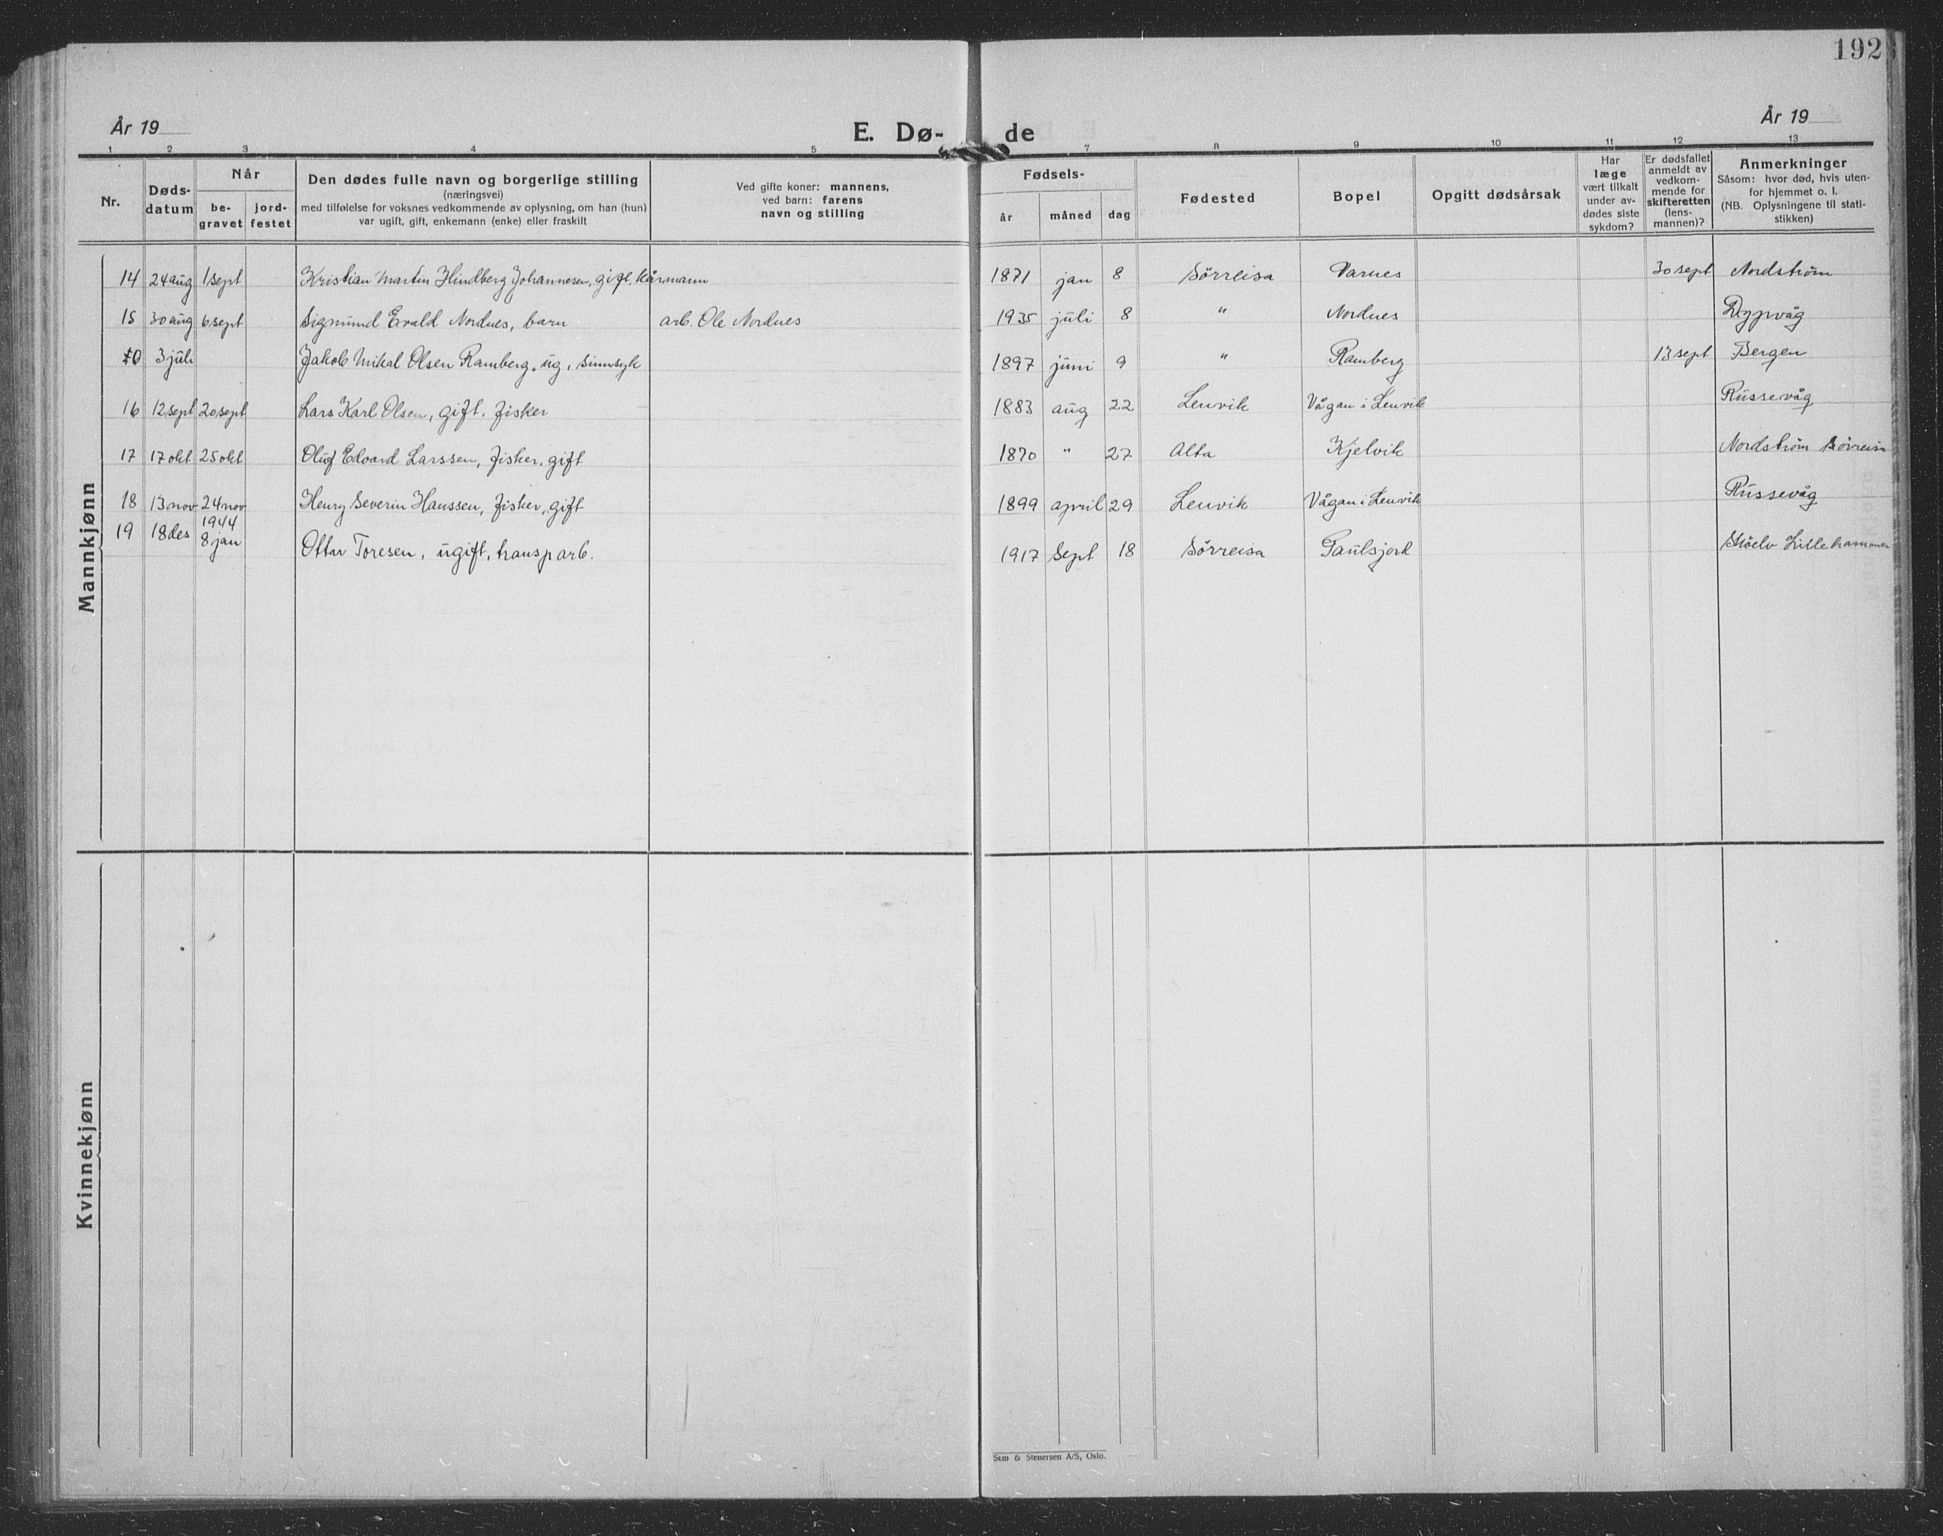 192
År 19
E. Dø-
de
År 19
1 2 3 4 5 7 8 9 10 11 12 13
Nr.
Døds-
datum
Når
be-
gravet
jord-
festet
Den dødes fulle navn og borgerlige stilling
(næringsvei)
med tilføielse for voksnes vedkommende av oplysning, om han (hun)
var ugift, gift, enkemann (enke) eller fraskilt
Ved gifte koner: mannens,
ved barn: farens
navn og stilling
Fødsels-
år
måned
dag
Fødested
Bopel
Opgitt dødsårsak
Har
læge
vært tilkalt
under av-
dødes siste
sykdom?
Er dødsfallet
anmeldt av
vedkom-
mende for
skifteretten
(lens-
mannen)?
Anmerkninger
Såsom: hvor død, hvis uten-
for hjemmet o. l.
(NB. Oplysningene til stati-
stikken)
Mannkjønn
14 24 aug 1 sept Kristian Martin Hindberg Johannesen, gift. kårmann 1871 jan 8 Sørreisa Varnes 30 sept Nordstrøm
15 30 aug 6 sept Sigmund Evald Nordnes, barn arb. Ole Nordnes 1935 juli 8 " Nordnes Dypvåg
3 juli Jakob Mikal Olsen Ramberg, ug, sinnsyk 1897 juni 9 " Ramberg 13 sept Bergen
16 12 sept 20 sept Lars Karl Olsen, gift. fisker 1883 aug 22 Lenvik Vågan i Lenvik Russevåg
17 17 okt 25 okt Oluf Edvard Larssen, fisker, gift 1870 " 27 Alta Kjelvik Nordstrøm Sørreisa
18 13 nov 24 nov Henry Severin Hanssen, fisker, gift 1899 april 29 Lenvik Vågan i Lenvik Russevåg
19 18 des 1944 8 jan Ottar Toresen, ugift, transp arb. 1917 Sept 18 Sørreisa Gaulsjord Lillehammer
Kvinnekjønn
Sem & Stenersen A/S, Oslo.